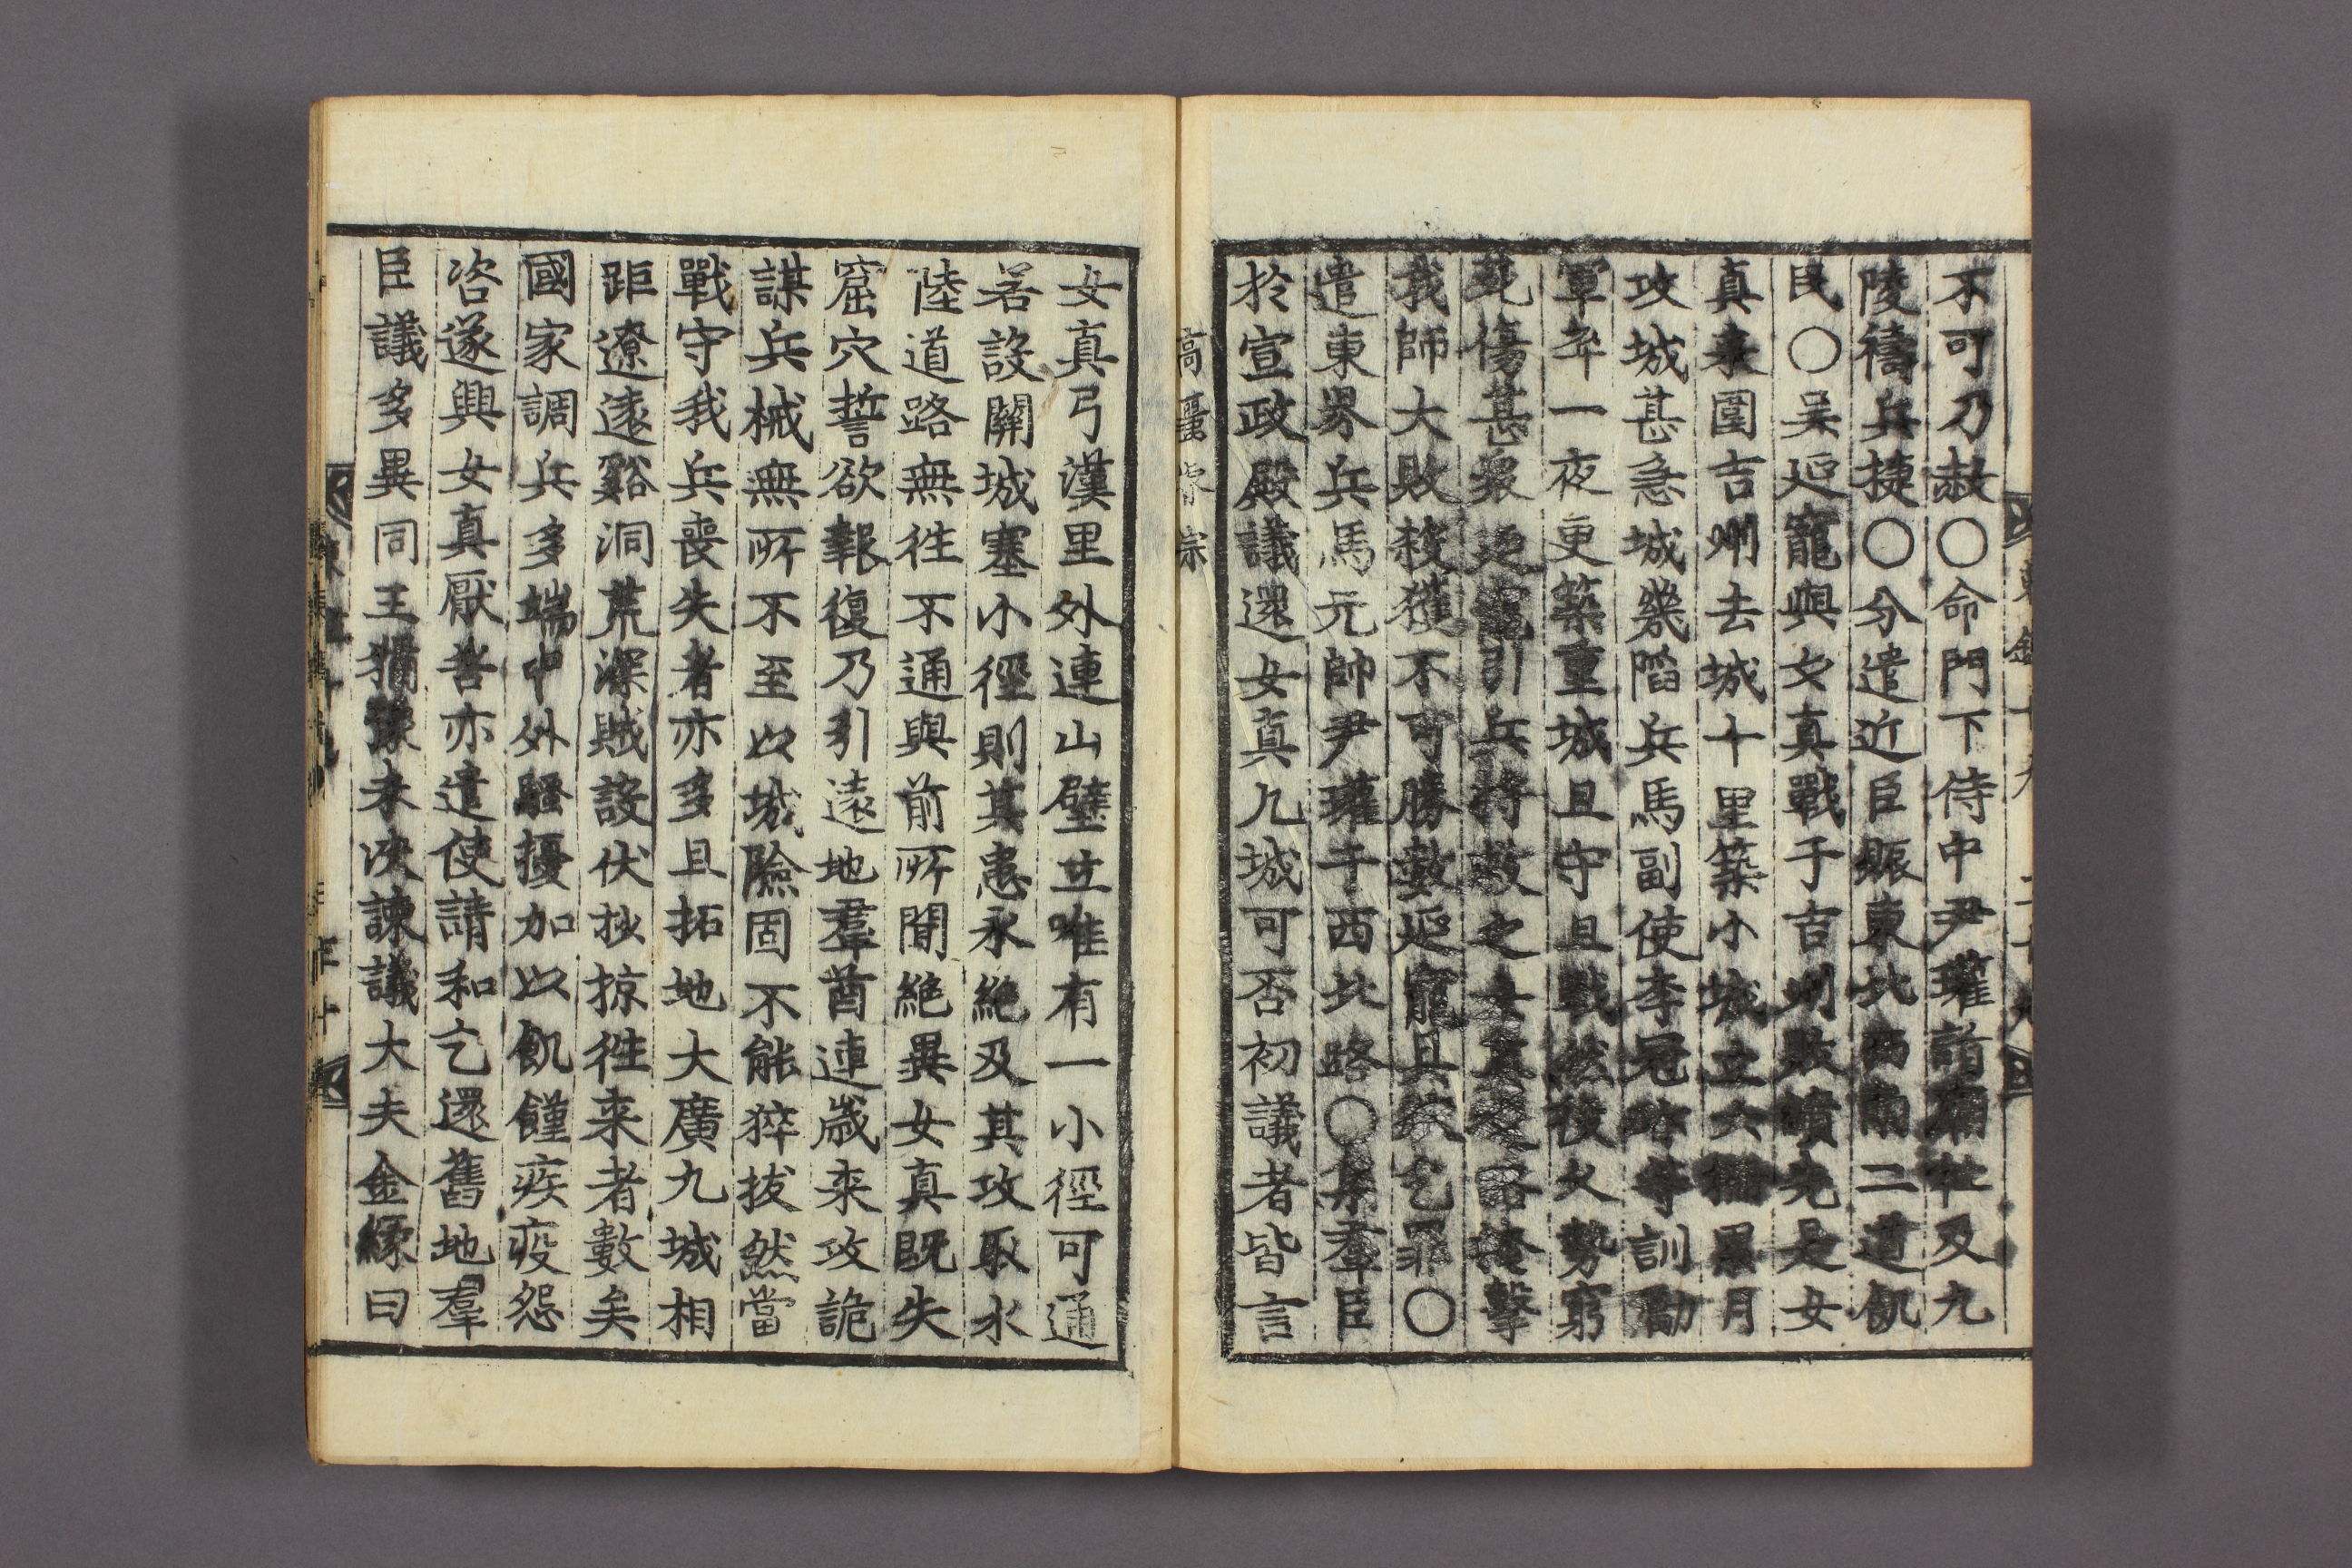 不可乃赦○命門下侍中尹瓘詣廟社及九
陵禱兵捷○分遣近臣賑東北西南二道飢
民○吴延寵與女真戰于吉州敗績先是女
真来圍吉州去城十里築小城立六柵累月
攻城甚急城幾陷兵馬副使李冠珍等訓勵
軍卒一夜更築重城且守且戰然役久勢窮
死傷甚衆延寵引兵將救之女真邀路掩擊
我師大敗殺獲不可勝數延寵具狀乞罪○
遣東界兵馬元帥尹瓘于西北路○集羣臣
於宣政殿議還女真九城可否初議者皆言
女真弓漢里外連山壁立唯有一小徑可通
若設關城塞小徑則其患永絶及其攻取水
陸道路無徃不通與前所聞絶異女真既失
窟穴誓欲報復乃引遠地羣酋連歲来攻詭
謀兵械無所不至以城險固不能猝拔然當
戰守我兵喪失者亦多且拓地大廣九城相
距遼遠谿洞荒深賊設伏抄掠徃来者數矣
國家調兵多端中外騷擾加以飢饉疾疫怨
咨遂興女真厭苦亦遣使請和乞還舊地羣
臣議多異同王猶豫未决諫議大夫金緣曰